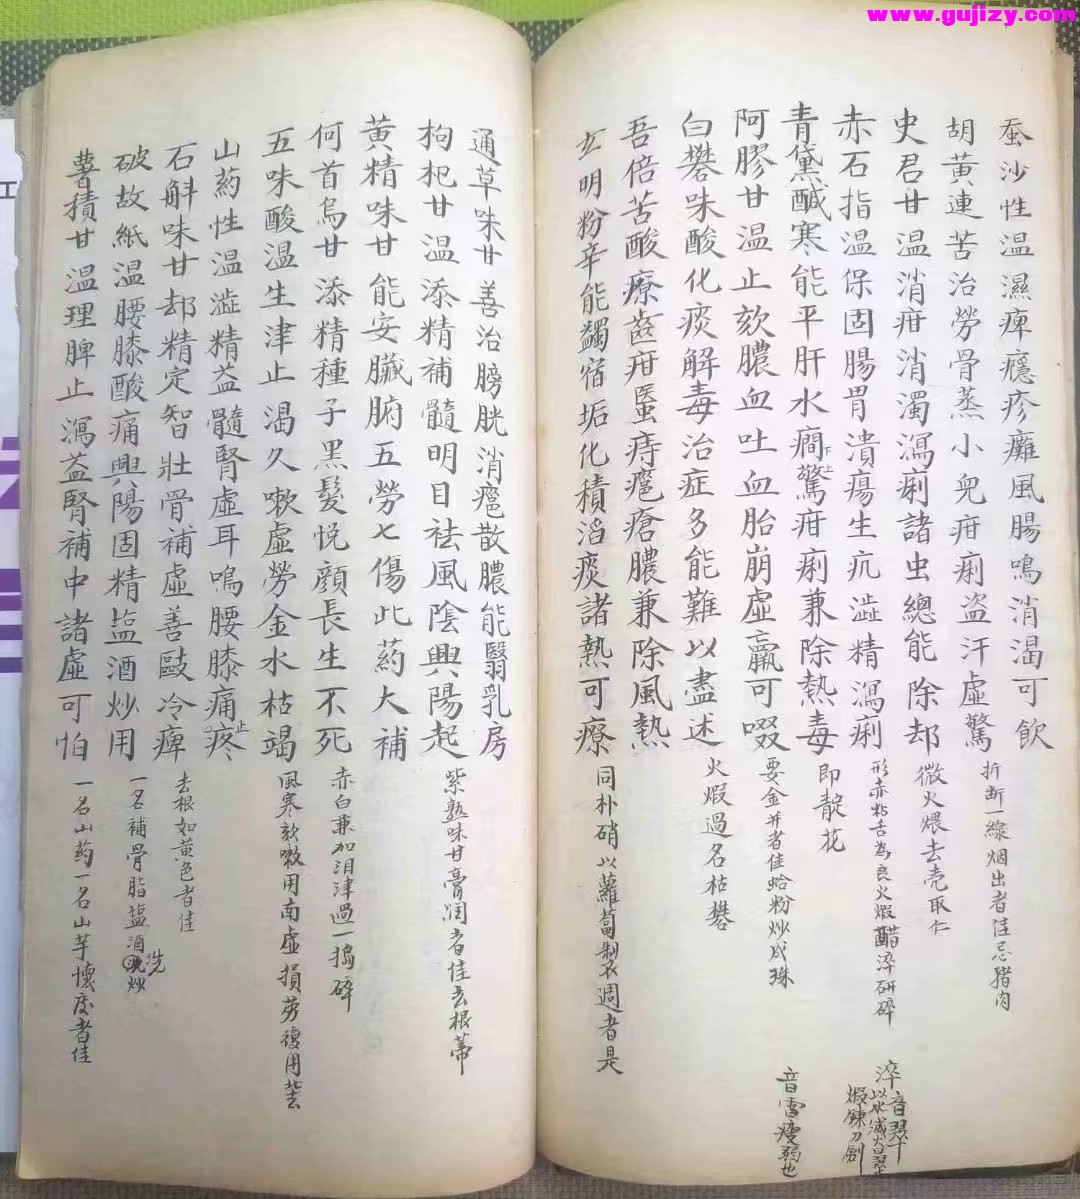 www.gujizy.com
蚕沙性温濕痺癮疹癱風腸鳴消渴可飲
胡黃連苦治勞骨蒸小兒疳痢盜汗虛驚
折断一線烟出者佳忌猪肉
史君甘温消疳消濁瀉痢諸虫總能除却
微火煨去壳取仁
赤石指温保固腸胃潰瘍生肌澁精瀉痢
形赤粘舌為良火煆醋淬研碎
淬音翠
青黛醎寒能平肝水癇驚疳痢兼除熱毒
下上
即靛花
阿膠甘温止欬膿血吐血胎崩虛羸可啜
要金井者佳蛤粉炒成珠
音雷瘦弱也
白礬味酸化痰解毒治症多能難以盡述
火煆過名枯礬
吾倍苦酸療齒疳䘌痔瘡膿兼除風熱
玄明粉辛能蠲宿垢化積滔痰諸熱可療
同朴硝以蘿蔔製週者是
通草味甘善治膀胱消癰散膿能翳乳房
枸杞甘温添精補髓明目祛風陰興陽起
紫熟味甘膏潤者佳去根蒂
黃精味甘能安臟腑五勞七傷此药大補
何首烏甘添精種子黑髮悅顏長生不死
赤白兼加泔津過一搗碎
五味酸温生津止渴久嗽虛勞金水枯竭
風寒欬嗽用南虛損勞復用北去
山药性温澁精益髓腎虛耳鳴腰膝痛疼
止
石斛味甘却精定智壯骨補虛善敺冷痺
去根如黃色者佳
破故紙温腰膝酸痛興陽固精盐酒炒用
一名補骨脂盐酒洗炒
薯積甘温理脾止瀉益腎補中諸虛可怕
一名山药一名山芋懷慶者佳